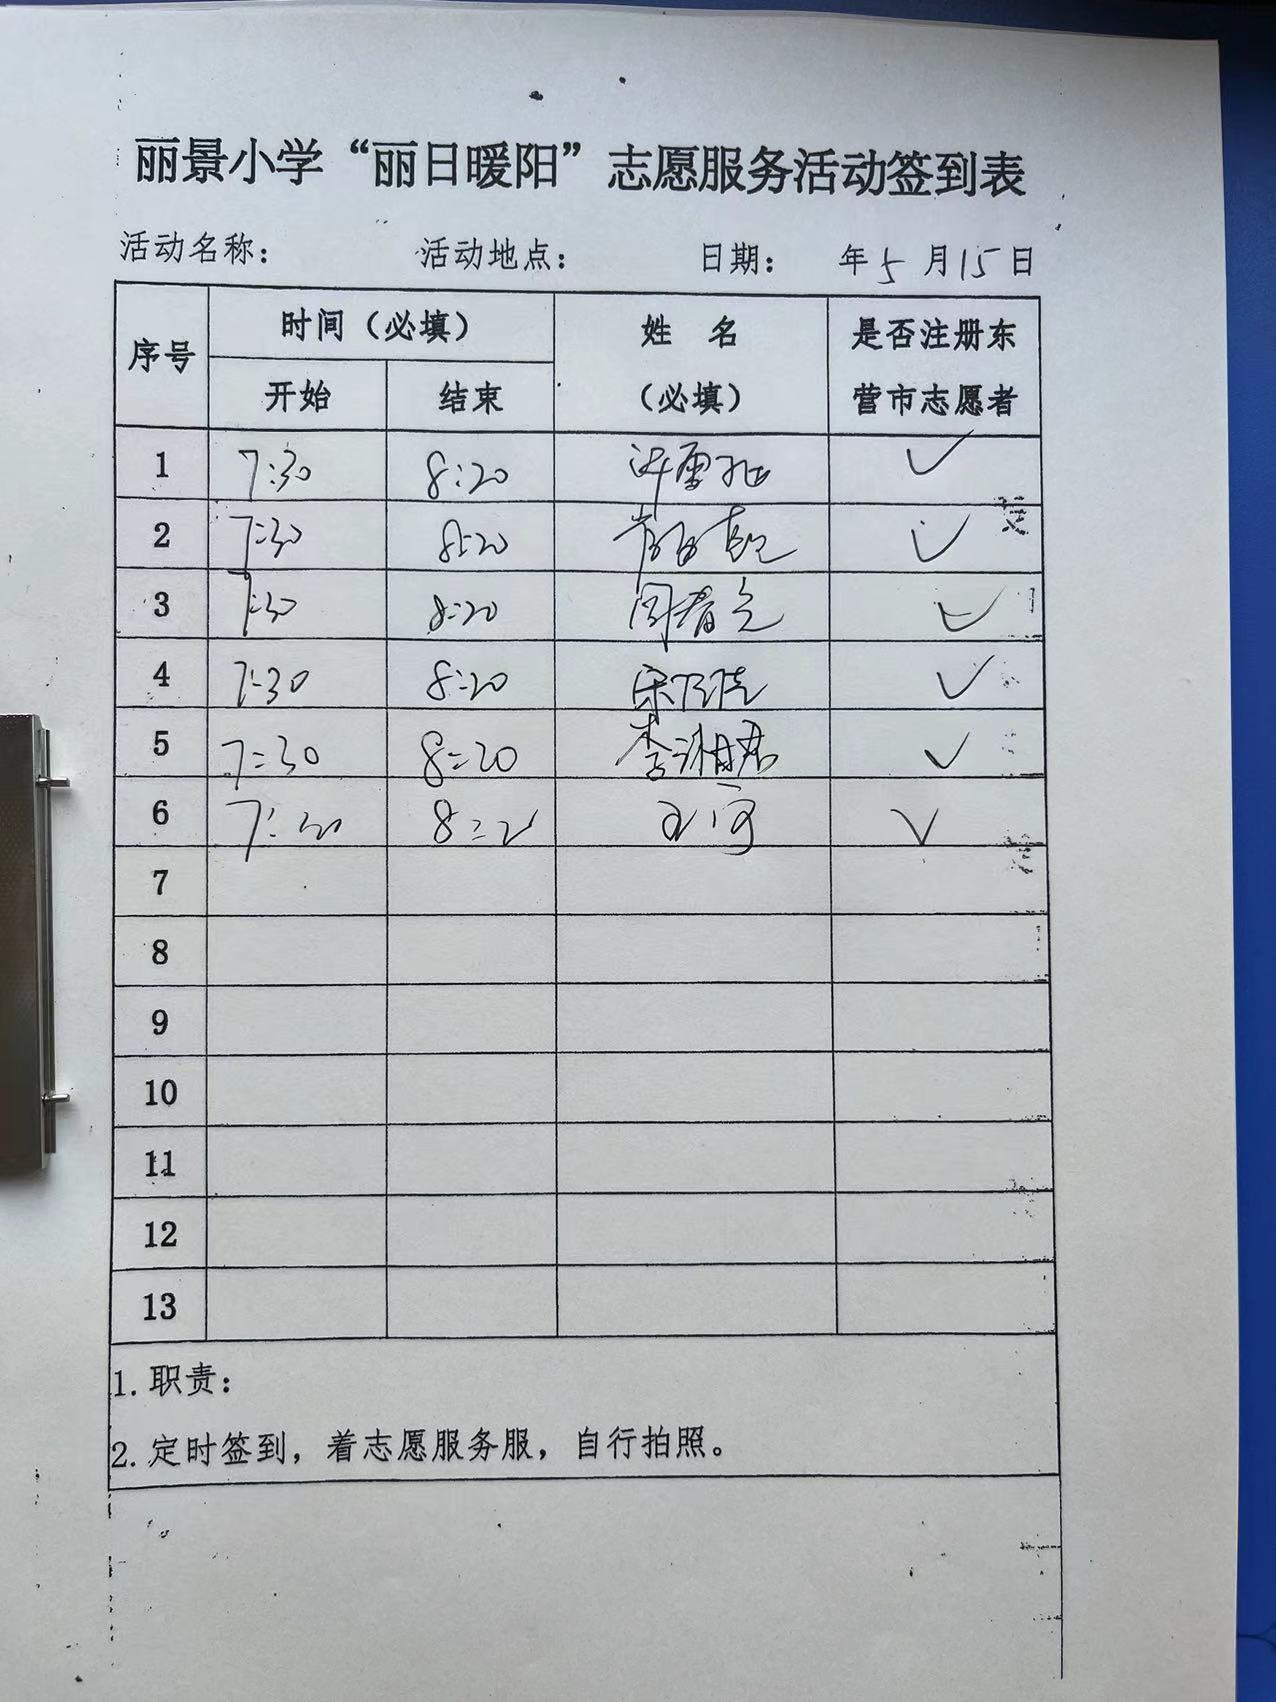 丽景小学“丽日暖阳”志愿服务活动签到表
活动名称： 活动地点： 日期： 年5月15日
序号 时间（必填） 姓名（必填） 是否注册东营市志愿者
开始 结束
1 7:30 8:20 ✓
2 7:30 8:20 ✓
3 7:30 8:20 周春光 ✓
4 7:30 8:20 ✓
5 7:30 8:20 李湘君 ✓
6 7:30 8:20 ✓
7
8
9
10
11
12
13
1.职责：
2.定时签到，着志愿服务服，自行拍照。